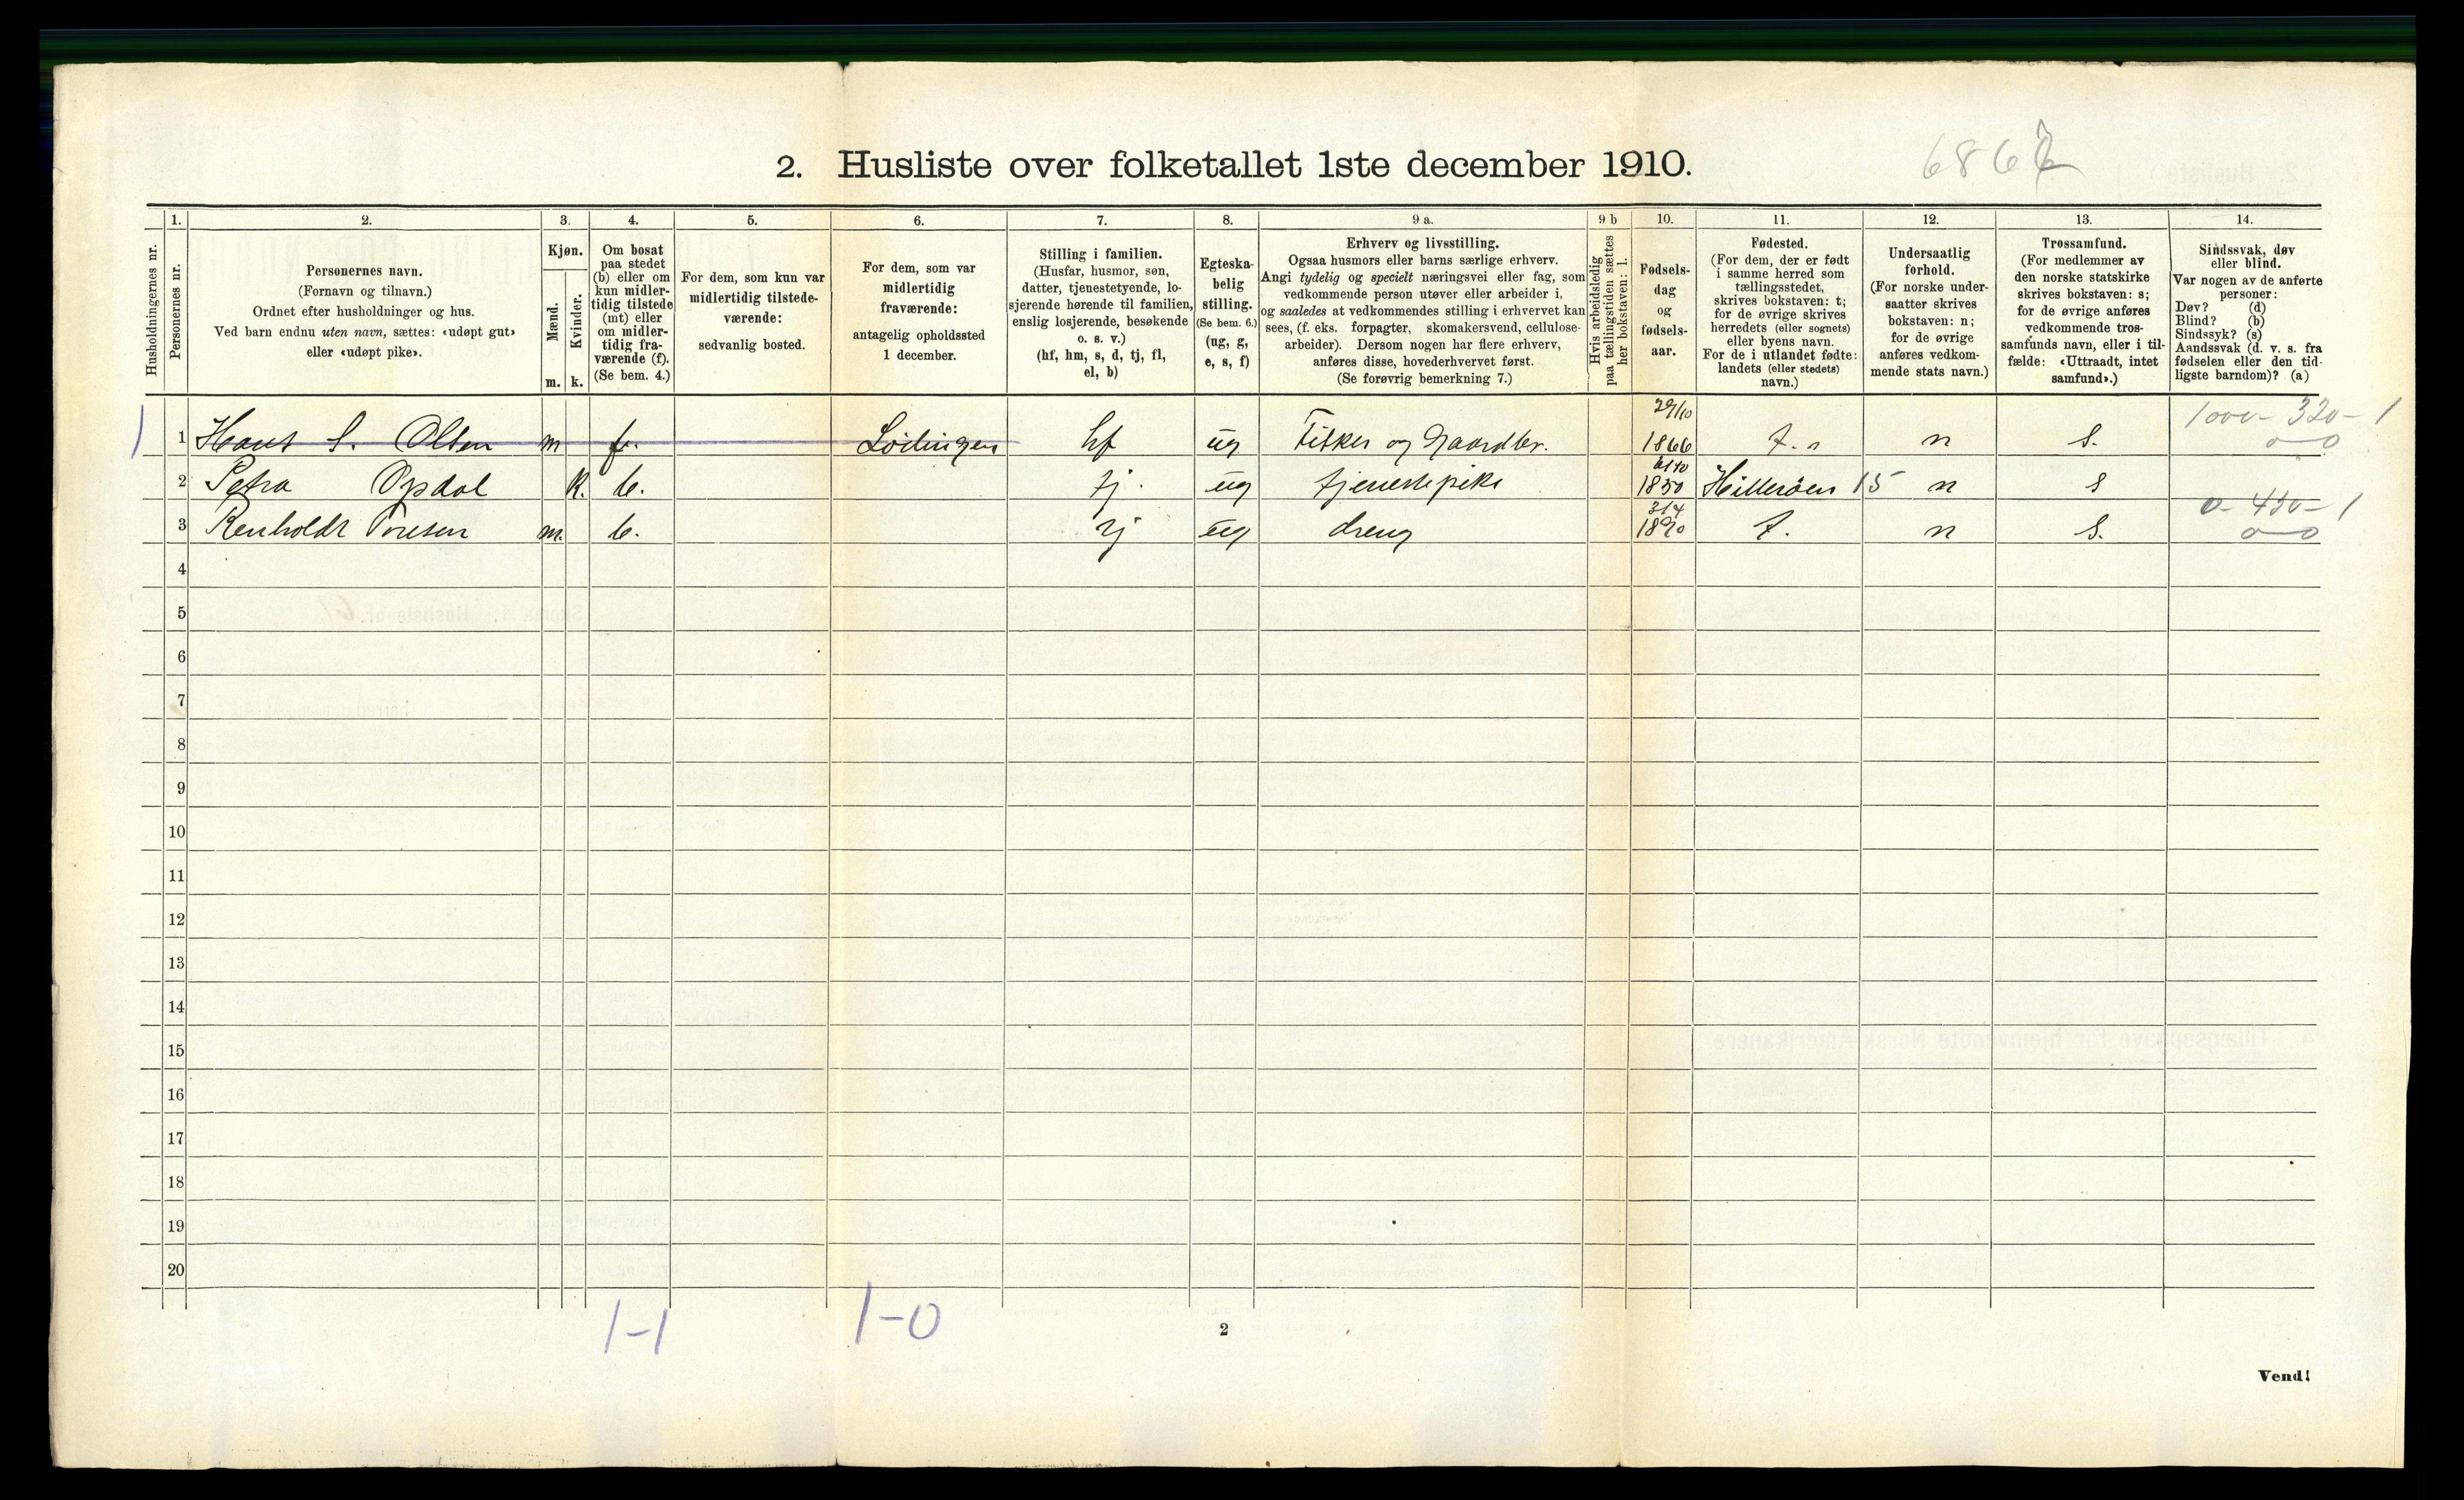 2. Husliste over folketallet 1ste december 1910.
1. 2. 3. 4. 5. 6. 7. 8. 9 a. 9 b 10. 11. 12. 13. 14.
Husholdningernes nr.
Personernes nr.
Personernes navn.
(Fornavn og tilnavn.)
Ordnet efter husholdninger og hus.
Ved barn endnu uten navn, sættes: «udøpt gut»
eller «udøpt pike».
Kjøn.
Mænd.
Kvinder.
m. k.
Om bosat
paa stedet
(b) eller om
kun midler-
tidig tilstede
(mt) eller
om midler-
tidig fra-
værende (f).
(Se bem. 4.)
For dem, som kun var
midlertidig tilstede-
værende:
sedvanlig bosted.
For dem, som var
midlertidig
fraværende:
antagelig opholdssted
1 december.
Stilling i familien.
(Husfar, husmor, søn,
datter, tjenestetyende, lo-
sjerende hørende til familien,
enslig losjerende, besøkende
o. s. v.)
(hf, hm, s, d, tj, fl,
el, b)
Egteska-
belig
stilling.
(Se bem. 6.)
(ug, g,
e, s, f)
Erhverv og livsstilling.
Ogsaa husmors eller barns særlige erhverv.
Angi tydelig og specielt næringsvei eller fag, som
vedkommende person utøver eller arbeider i,
og saaledes at vedkommendes stilling i erhvervet kan
sees, (f. eks. forpagter, skomakersvend, cellulose-
arbeider). Dersom nogen har flere erhverv,
anføres disse, hovederhvervet først.
(Se forøvrig bemerkning 7.)
Hvis arbeidsledig
paa tællingstiden sættes
her bokstaven: l.
Fødsels-
dag
og
fødsels-
aar.
Fødested.
(For dem, der er født
i samme herred som
tællingsstedet,
skrives bokstaven: t;
for de øvrige skrives
herredets (eller sognets)
eller byens navn.
For de i utlandet fødte:
landets (eller stedets)
navn.)
Undersaatlig
forhold.
(For norske under-
saatter skrives
bokstaven: n;
for de øvrige
anføres vedkom-
mende stats navn.)
Trossamfund.
(For medlemmer av
den norske statskirke
skrives bokstaven: s;
for de øvrige anføres
vedkommende tros-
samfunds navn, eller i til-
fælde: «Uttraadt, intet
samfund».)
Sindssvak, døv
eller blind.
Var nogen av de anførte
personer:
Døv? (d)
Blind? (b)
Sindssyk? (s)
Aandssvak (d. v. s. fra
fødselen eller den tid-
ligste barndom)? (a)
1 1 Hans S. Olsen m f. Lödingen hf ug Fisker og Gaardbr. 29/10 1866 t. n s. 1000-320-1
0-0
2 Petra Opdal k. b. tj. ug tjenestepike 1850 15 n s
3 Renholdt m. b. tj ug dreng 3/4 1890 t. n s. 0-450-1
0-0
4
5
6
7
8
9
10
11
12
13
14
15
16
17
18
19
20
1-1 1-0
2
Vend!